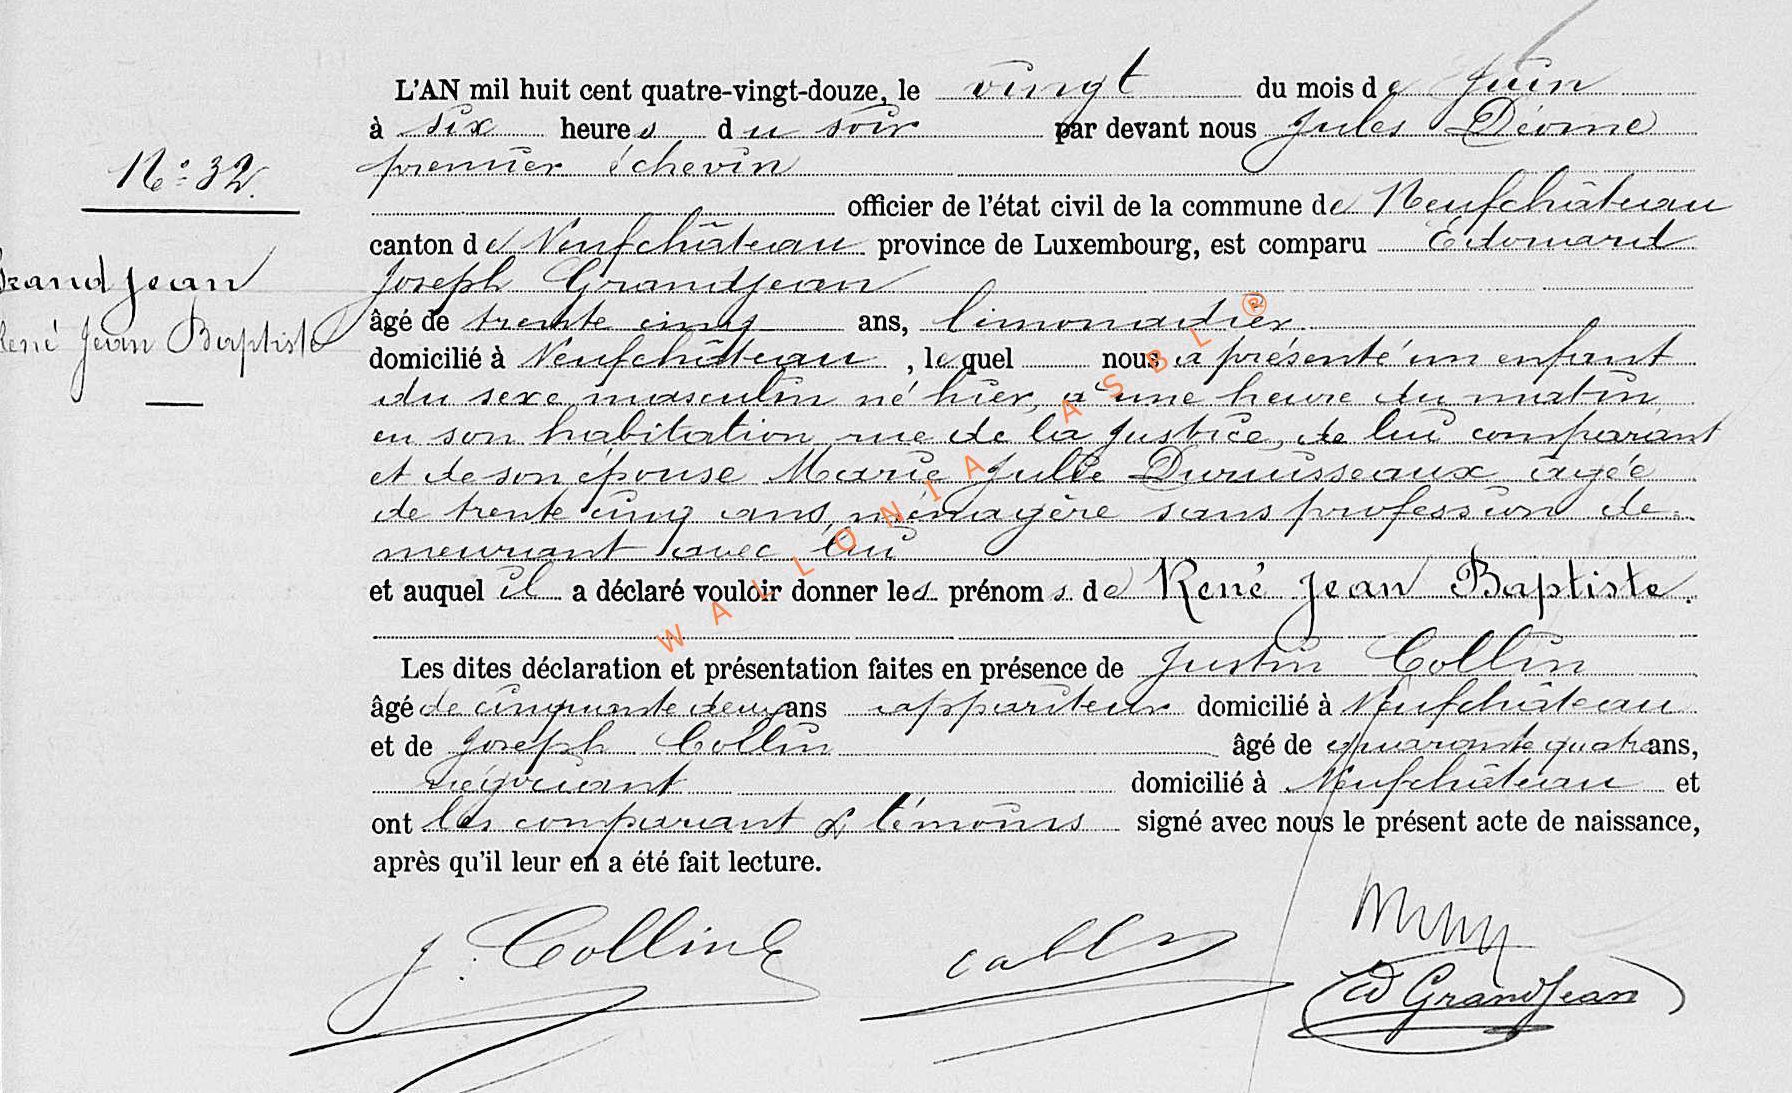 L'AN mil huit cent quatre-vingt-douze, le vingt du mois de Juin
à six heures du soir par devant nous Jules Déome
premier échevin
N° 32.
officier de l'état civil de la commune de Neufchâteau
canton de Neufchâteau province de Luxembourg, est comparu Edouard
Grandjean
Joseph Grandjean
âgé de trente cinq ans, limonadier
René Jean Baptiste
domicilié à Neufchâteau, lequel nous a présenté un enfant
du sexe masculin né hier, à une heure du matin,
en son habitation rue de la Justice, de lui comparant
et de son épouse Marie Julie Duruisseaux âgée
de trente cinq ans, ménagère sans profession de=
meurant avec lui
et auquel il a déclaré vouloir donner les prénoms de René Jean Baptiste.
Les dites déclaration et présentation faites en présence de Justin Collin
âgé de cinquante deux ans appariteur domicilié à Neufchâteau
et de Joseph Collin âgé de quarante quatre ans,
négociant domicilié à Neufchâteau et
ont les comparant & témoins signé avec nous le présent acte de naissance,
après qu'il leur en a été fait lecture.
J. Collin
Ed Grandjean
WALLONIA ASBL ®